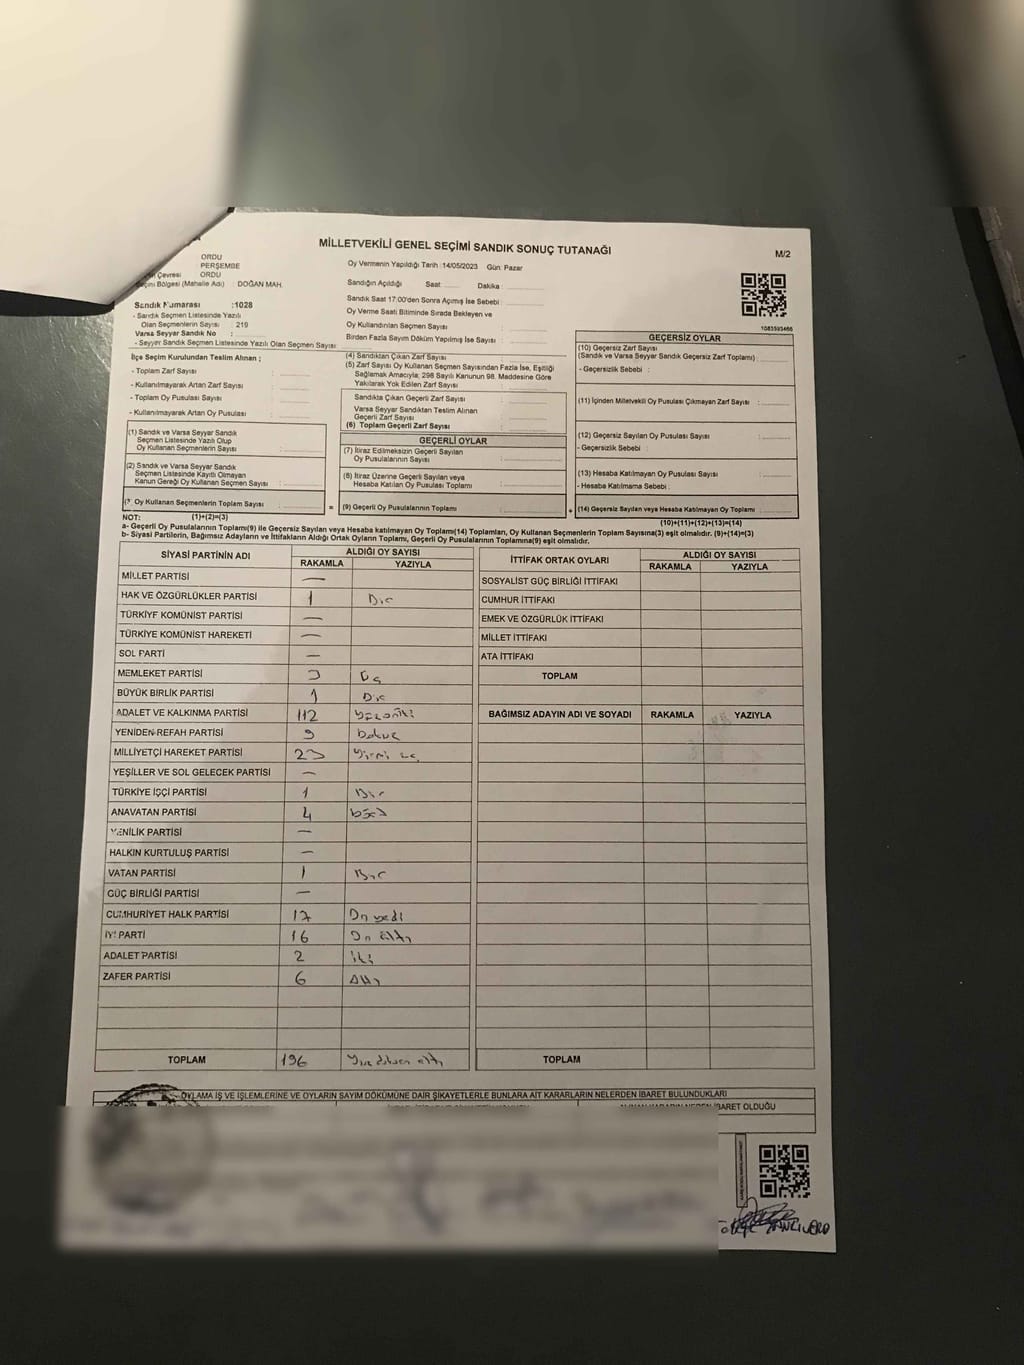 MİLLETVEKİLİ GENEL SEÇİMİ SANDIK SONUÇ TUTANAĞI
M/2
ORDU
PERŞEMBE
Çevresi ORDU
Seçim Bölgesi (Mahalle Adı) : DOĞAN MAH.
Oy Vermenin Yapıldığı Tarih :14/05/2023 Gün: Pazar
Sandık Numarası :1028
- Sandık Seçmen Listesinde Yazılı
Olan Seçmenlerin Sayısı : 219
Varsa Seyyar Sandık No :
- Seyyar Sandık Seçmen Listesinde Yazılı Olan Seçmen Sayısı
Sandığın Açıldığı Saat Dakika :
Sandık Saat 17:00'den Sonra Açımış İse Sebebi :
Oy Verme Saati Bitiminde Sırada Bekleyen ve
Oy Kullandırılan Seçmen Sayısı :
Birden Fazla Sayım Döküm Yapılmış İse Sayısı :
1083593466
İlçe Seçim Kurulundan Teslim Alınan ;
- Toplam Zarf Sayısı :
- Kullanılmayarak Artan Zarf Sayısı :
- Toplam Oy Pusulası Sayısı :
- Kullanılmayarak Artan Oy Pusulası :
(1) Sandık ve Varsa Seyyar Sandık
Seçmen Listesinde Yazılı Olup
Oy Kullanan Seçmenlerin Sayısı :
(2) Sandık ve Varsa Seyyar Sandık
Seçmen Listesinde Kayıtlı Olmayan
Kanun Gereği Oy Kullanan Seçmen Sayısı :
(3) Oy Kullanan Seçmenlerin Toplam Sayısı :
(4) Sandıktan Çıkan Zarf Sayısı :
(5) Zarf Sayısı Oy Kullanan Seçmen Sayısından Fazla İse, Eşitliği
Sağlamak Amacıyla; 298 Sayılı Kanunun 98. Maddesine Göre
Yakılarak Yok Edilen Zarf Sayısı :
Sandıkta Çıkan Geçerli Zarf Sayısı :
Varsa Seyyar Sandıktan Teslim Alınan
Geçerli Zarf Sayısı :
(6) Toplam Geçerli Zarf Sayısı :
GEÇERLİ OYLAR
(7) İtiraz Edilmeksizin Geçerli Sayılan
Oy Pusulalarının Sayısı :
(8) İtiraz Üzerine Geçerli Sayılan veya
Hesaba Katılan Oy Pusulası Toplamı :
= (9) Geçerli Oy Pusulalarının Toplamı :
GEÇERSİZ OYLAR
(10) Geçersiz Zarf Sayısı
(Sandık ve Varsa Seyyar Sandık Geçersiz Zarf Toplamı) :
- Geçersizlik Sebebi :
(11) İçinden Milletvekili Oy Pusulası Çıkmayan Zarf Sayısı :
(12) Geçersiz Sayılan Oy Pusulası Sayısı :
- Geçersizlik Sebebi :
(13) Hesaba Katılmayan Oy Pusulası Sayısı :
- Hesaba Katılmama Sebebi :
+ (14) Geçersiz Sayılan veya Hesaba Katılmayan Oy Toplamı :
NOT: (1)+(2)=(3) (10)+(11)+(12)+(13)=(14)
a- Geçerli Oy Pusulalarının Toplamı(9) ile Geçersiz Sayılan veya Hesaba katılmayan Oy Toplamı(14) Toplamları, Oy Kullanan Seçmenlerin Toplam Sayısına(3) eşit olmalıdır. (9)+(14)=(3)
b- Siyasi Partilerin, Bağımsız Adayların ve İttifakların Aldığı Ortak Oyların Toplamı, Geçerli Oy Pusulalarının Toplamına(9) eşit olmalıdır.
SİYASİ PARTİNİN ADI ALDIĞI OY SAYISI
RAKAMLA YAZIYLA
MİLLET PARTİSİ —
HAK VE ÖZGÜRLÜKLER PARTİSİ 1 Bir
TÜRKİYE KOMÜNİST PARTİSİ —
TÜRKİYE KOMÜNİST HAREKETİ —
SOL PARTİ —
MEMLEKET PARTİSİ 3 Üç
BÜYÜK BİRLİK PARTİSİ 1 Bir
ADALET VE KALKINMA PARTİSİ 112 Yüzoniki
YENİDEN REFAH PARTİSİ 9 Dokuz
MİLLİYETÇİ HAREKET PARTİSİ 23 Yirmi üç
YEŞİLLER VE SOL GELECEK PARTİSİ —
TÜRKİYE İŞÇİ PARTİSİ 1 Bir
ANAVATAN PARTİSİ 4
YENİLİK PARTİSİ —
HALKIN KURTULUŞ PARTİSİ —
VATAN PARTİSİ 1 Bir
GÜÇ BİRLİĞİ PARTİSİ —
CUMHURİYET HALK PARTİSİ 17 On yedi
İYİ PARTİ 16 On altı
ADALET PARTİSİ 2 iki
ZAFER PARTİSİ 6 Altı
TOPLAM 196 Yüz doksan altı
İTTİFAK ORTAK OYLARI ALDIĞI OY SAYISI
RAKAMLA YAZIYLA
SOSYALİST GÜÇ BİRLİĞİ İTTİFAKI
CUMHUR İTTİFAKI
EMEK VE ÖZGÜRLÜK İTTİFAKI
MİLLET İTTİFAKI
ATA İTTİFAKI
TOPLAM
BAĞIMSIZ ADAYIN ADI VE SOYADI RAKAMLA YAZIYLA
TOPLAM
OYLAMA İŞ VE İŞLEMLERİNE VE OYLARIN SAYIM DÖKÜMÜNE DAİR ŞİKAYETLERLE BUNLARA AİT KARARLARIN NELERDEN İBARET BULUNDUKLARI
İBARET OLDUĞU